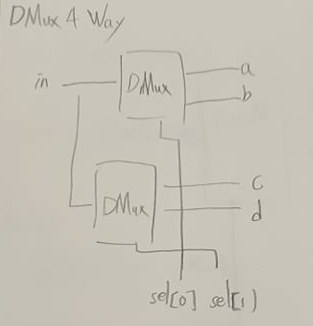 DMux 4 Way
in
DMux
a
b
DMux
c
d
sel[0] sel[1]